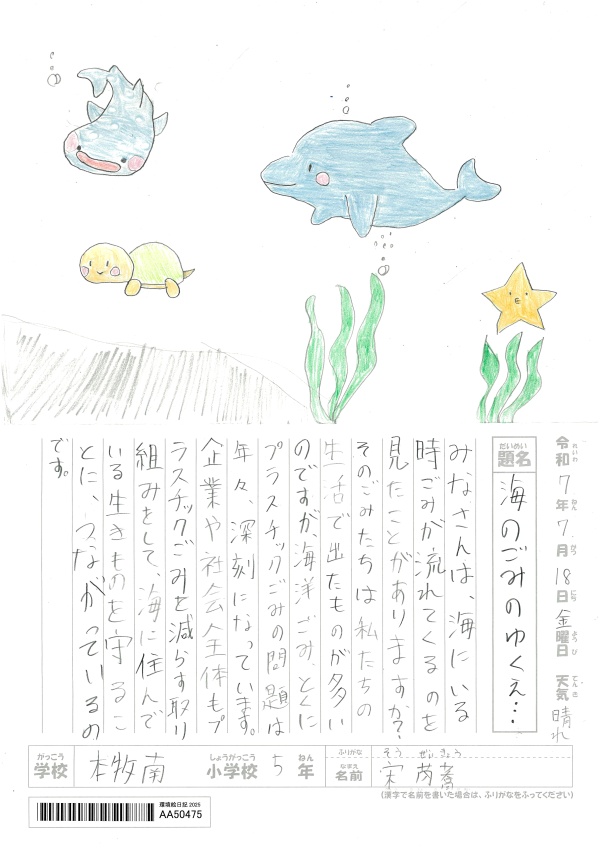 令和7年7月18日金曜日 天気 晴れ
れいわ ねん がつ にち ようび てんき
だいめい
題名 海のごみのゆくえ…
みなさんは、海にいる
時ごみが流れてくるのを
見たことがありますか?
そのごみたちは私たちの
生活で出たものが多い
のですが、海洋ごみ、とくに
プラスチックごみの問題は
年々、深刻になっています。
企業や社会全体もプ
ラスチックごみを減らす取り
組みをして、海に住んで
いる生きものを守るこ
とに、つながっているの
です。
がっこう しょうがっこう ねん
学校 本牧南 小学校 5年
ふりがな そう ぜいきょう
なまえ
名前 宋 芮喬
(漢字で名前を書いた場合は、ふりがなをふってください)
環境絵日記 2025
AA50475